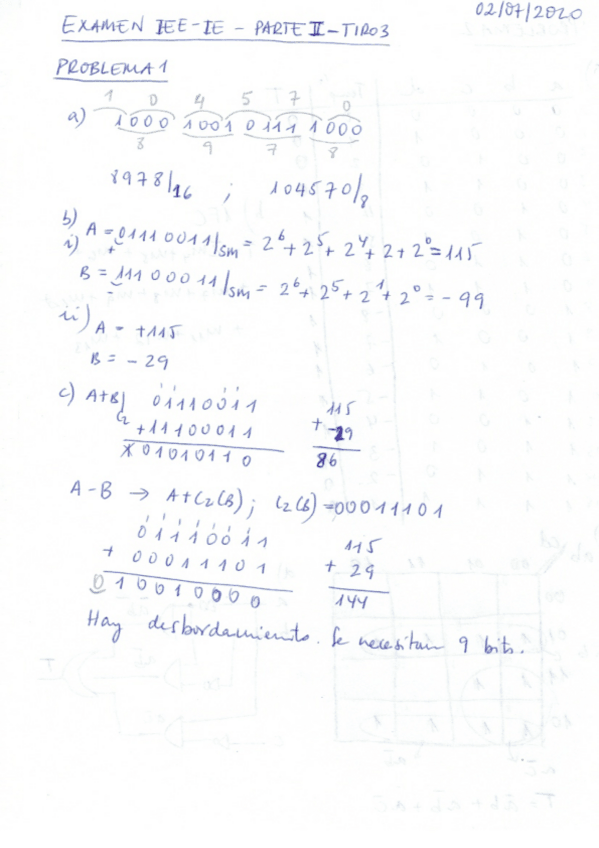 02/07/2020
EXAMEN IEE-IE - PARTE II - TIPO3
PROBLEMA 1
1 0 4 5 7 0
a) 1000 1001 0111 1000
8 9 7 8
8978/16 ; 104570/8
b)
i) A = 01110011/SM = 2^6 + 2^5 + 2^4 + 2 + 2^0 = 115
+
B = 11100011/SM = 2^6 + 2^5 + 2^1 + 2^0 = - 99
-
ii) A = +115
B = - 29
c) A+B/C2 01110011 115
+11100011 + -29
X01010110 86
A-B → A+C2(B); C2(B)=00011101
01110011 115
+ 00011101 + 29
010010000 144
Hay desbordamiento. Se necesitan 9 bits.